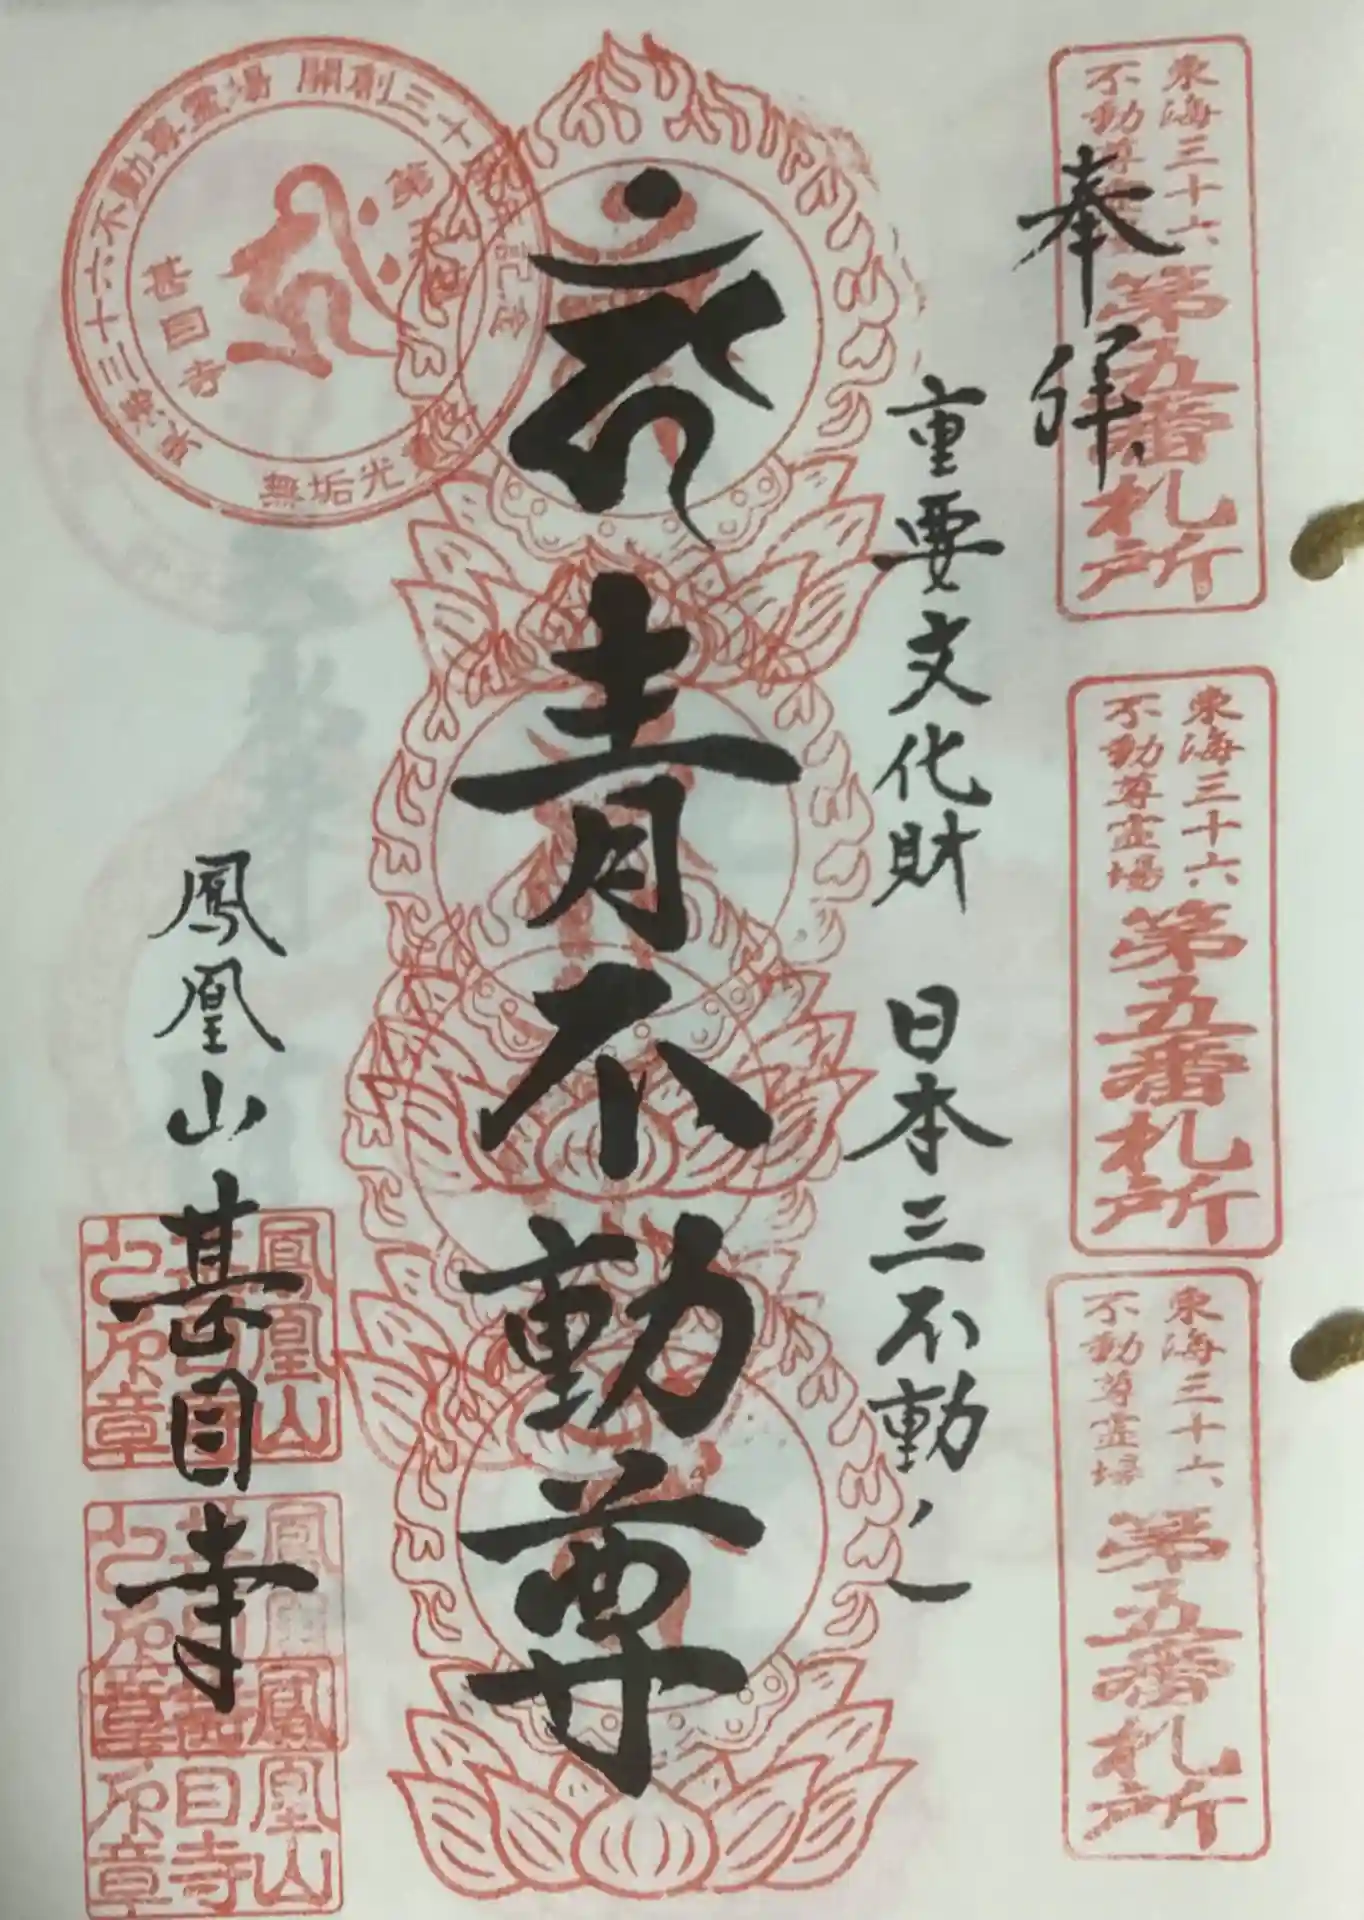 奉拝
東海三十六
不動尊霊場
第五番札所
東海三十六
不動尊霊場
第五番札所
東海三十六
不動尊霊場
第五番札所
重要文化財 日本三不動ノ一
青不動尊
鳳凰山 甚目寺
東海三十六不動尊霊場 開創三十
記念
無垢光
甚目寺
鳳凰山
甚目寺
鳳凰山
鳳凰山
甚目寺